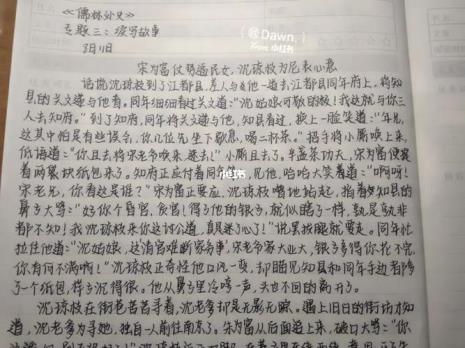 《儒林外史》
专题三：续写故事
3月1日
@Dawn.
宋为富仗势逼民女，沈琼枝为尼表心意
话说沈琼枝到了江都县，差人与她一道去江都县同年府上，将知
县的关文递与他看，同年细细看过关文道：“沈姑娘可敬的极！我这就与你三
人去知府。”到了知府，同年将关文递与他，知县看过，换上一脸笑道：“年兄，
这其中怕是有些误会，你几位先坐下歇息，喝二杯茶。”招手将小厮唤上来，
低语道：“你且去将宋老爷唤来，速去！”小厮且去了。半盏茶功夫，宋为富便提
着两箱块纸包来了。知府正应付着同年，见他，哈哈大笑着道：“啊呀！
宋老兄，你看这是谁？”宋为富正要应，沈琼枝嘴地站起，指着知县的
鼻子大骂：“好你个昏官，贪官！得了他的银子，就似瞎了一样，孰是孰非
都不知！我沈琼枝来你这讨公道，真是迷了心了！”
拉住他道：“沈姑娘，这清官难断家务事，宋老爷家大业大，银子多得你花不完，
你有何不满啊！”沈琼枝正奇怪他口风一变，却瞧见知县和同年手边各
了一个纸包，得沉得很。他从鼻子里冷哼一声，头也不回的离开了。
沈琼枝在街巷苦苦寻着，沈老爹却是无影无踪。遇上旧日的街坊才知
道，沈老爹为寻她，独自一人前往南京了。宋为富从后面追上来，破口大骂：“你